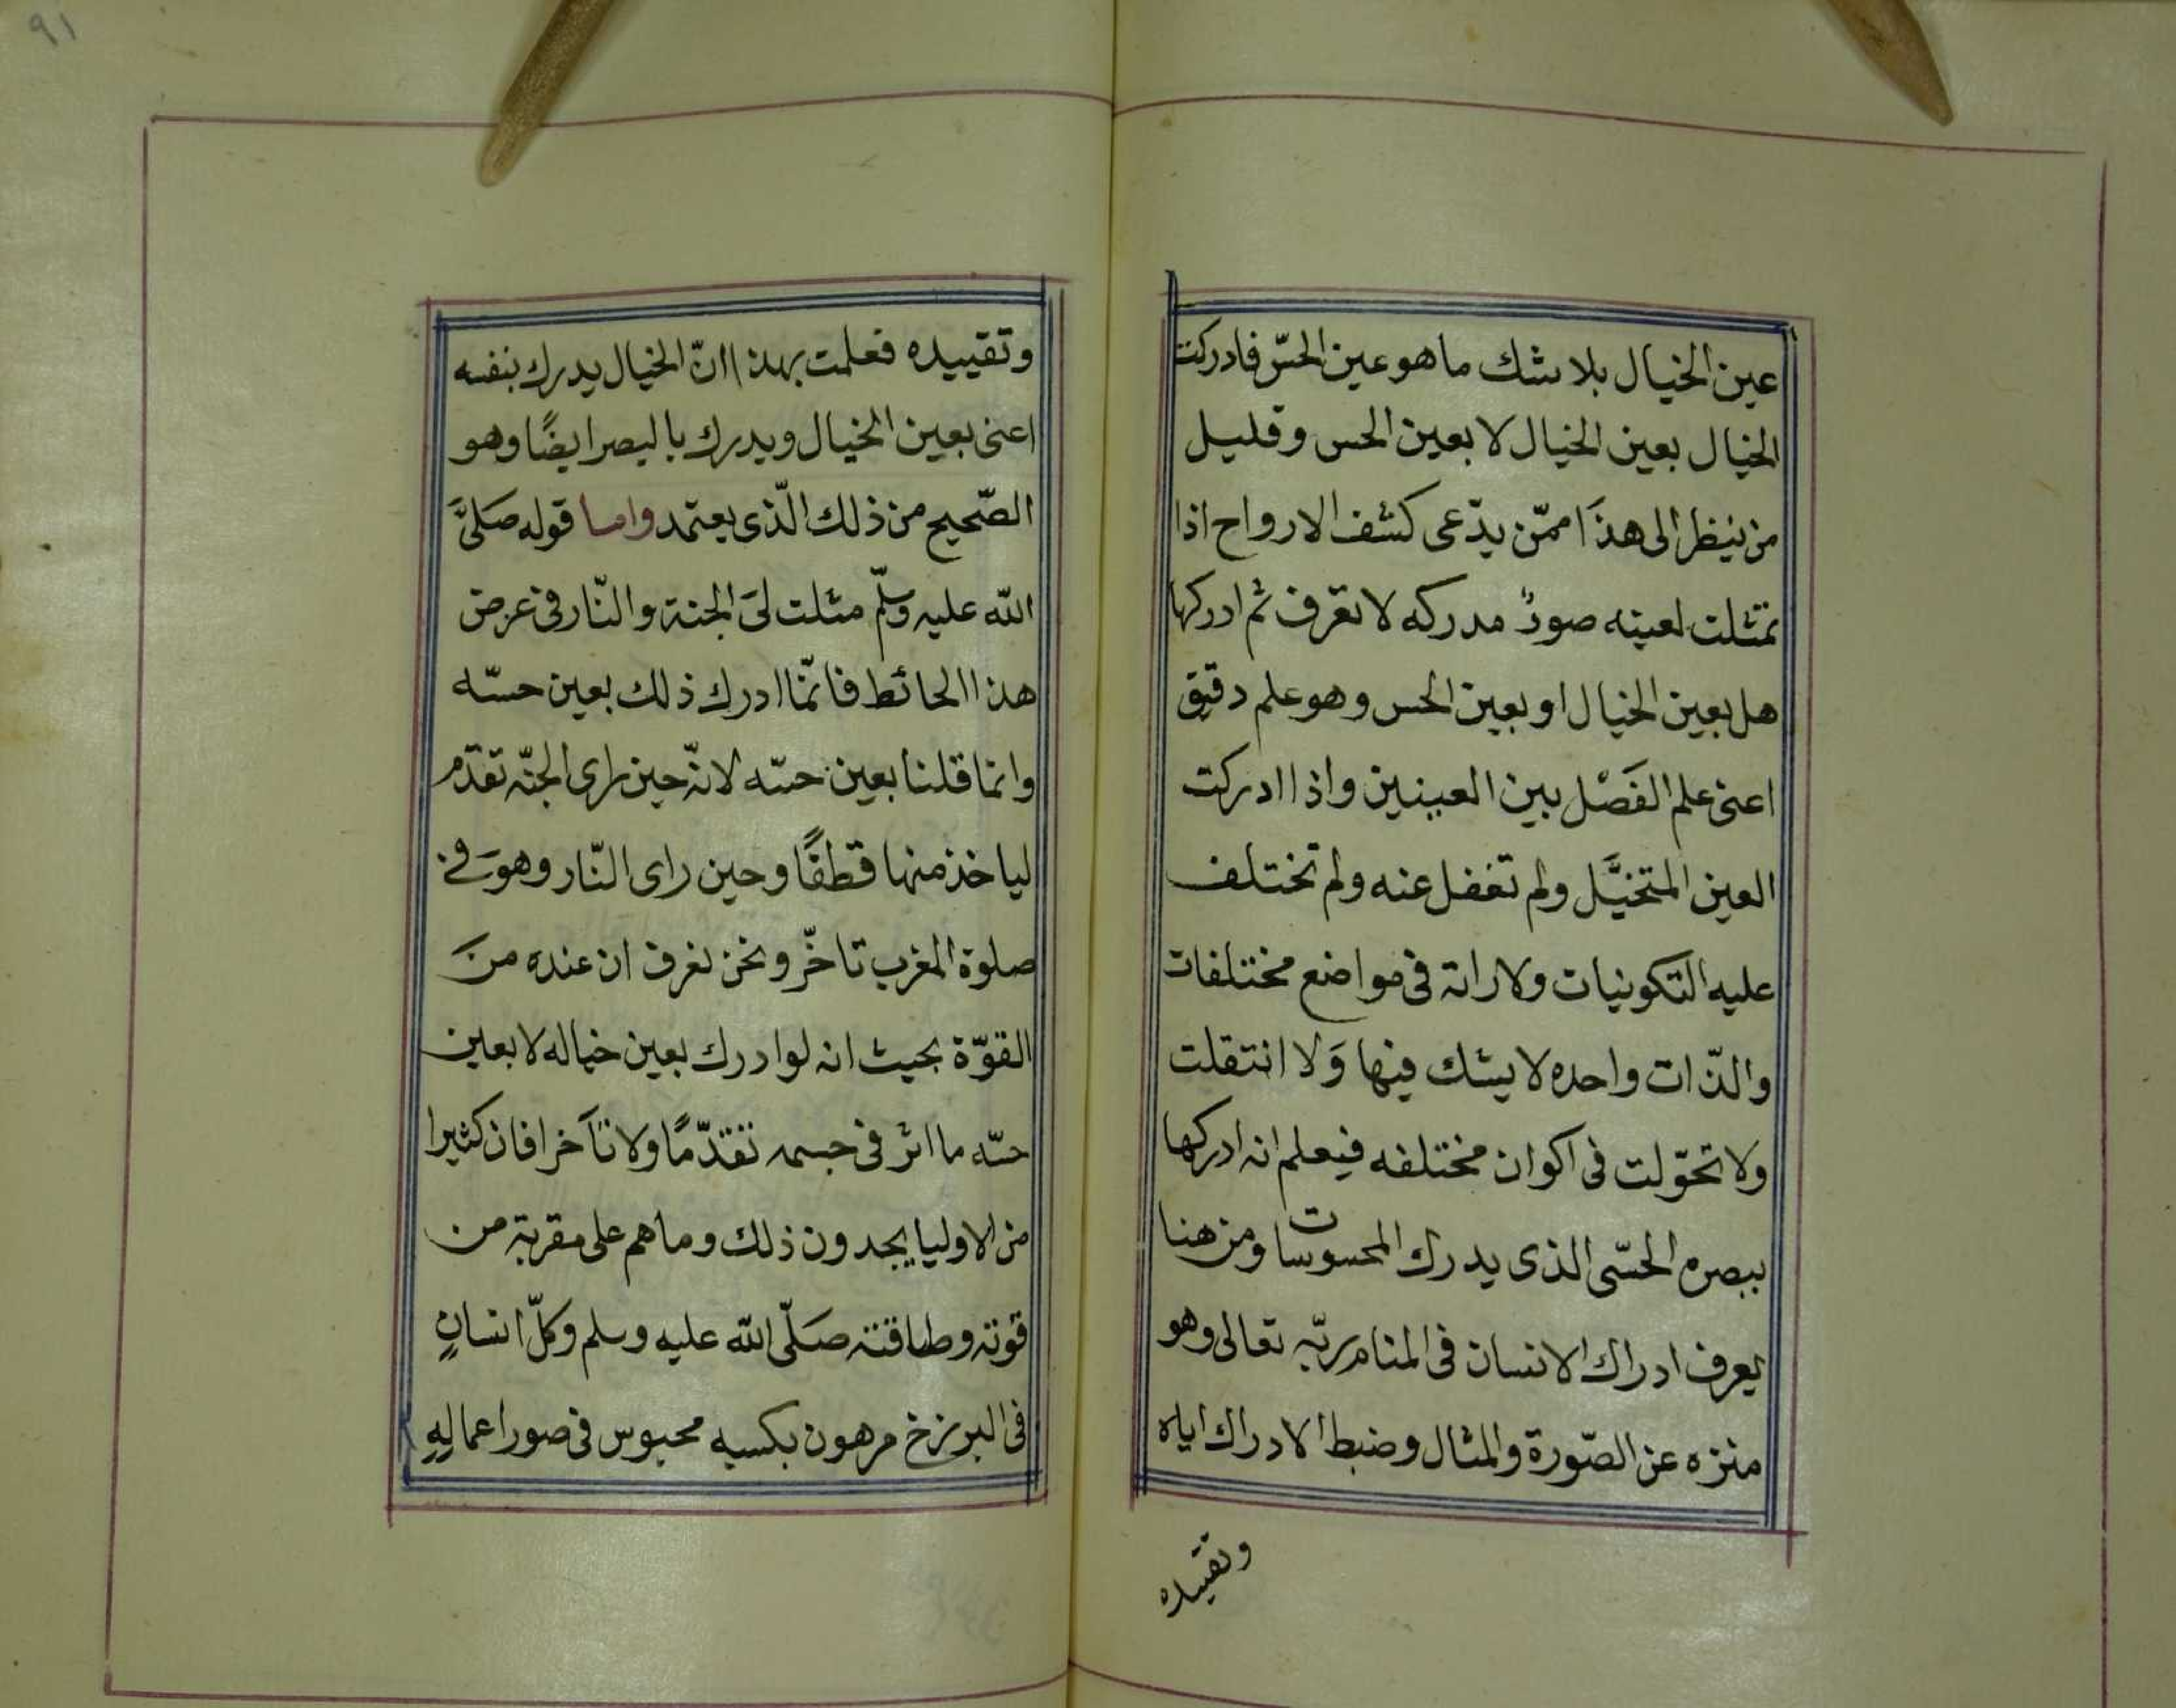 عين الخيال بلا شك ما هو عين الحسّ فادركت
الخيال بعين الخيال لا بعين الحس وقليل
من ينظر الى هذَا ممّن يدّعى كشف الارواح اذا
تمثلت لعينه صورٌ مدركه لا تعرف ثم ادركها
هل بعين الخيال او بعين الحس وهو علم دقيق
اعنى علم الفَصْل بين العينين واذا ادركت
العين المتخيَّل ولم تغفل عنه ولم تختلف
عليه التكوينيات ولا راته فى مواضع مختلفات
والذّات واحده لا يشك فيها وَلا انتقلت
ولا تحوّلت فى اكوان مختلفه فيعلم انه ادركها
ببصره الحسّى الذى يدرك المحسوسات ومن هنا
يعرف ادراك الانسان فى المنام ربّه تعالى وهو
منزه عن الصّورة والمثال وضبط الادراك اياه
وتقييده
٩١
وتقييده فعلمت بهذا انّ الخيال يدرك بنفسه
اعنى بعين الخيال ويدرك بالبصر ايضًا وهو
الصّحيح من ذلك الّذى يعتمد واما قوله صَلىَّ
الله عليه وسلّم مثلت لىَ الجنة والنّار فى عرض
هذا الحائط فانمّا ادرك ذلك بعين حسّه
وانما قلنا بعين حسّه لانّه حين راى الجنّه تقدّم
لياخذ منها قطفًا وحين راى النّار وهوَ فى
صلوة المغرب تاخّر ونحن نعرف ان عنده منَ
القوّة بحيث انه لو ادرك بعين خياله لا بعين
حسّه ما اثر فى جسمه تقدّمًا ولا تَاَخرا فان كثيرا
من الاوليا يجدون ذلك وما هم على مقربة من
قوته وطاقته صَلّى الله عليه وسلم وكلّ انسانٍ
فى البرزخ مرهون بكسبه محبوس فى صور اعمالِهِ